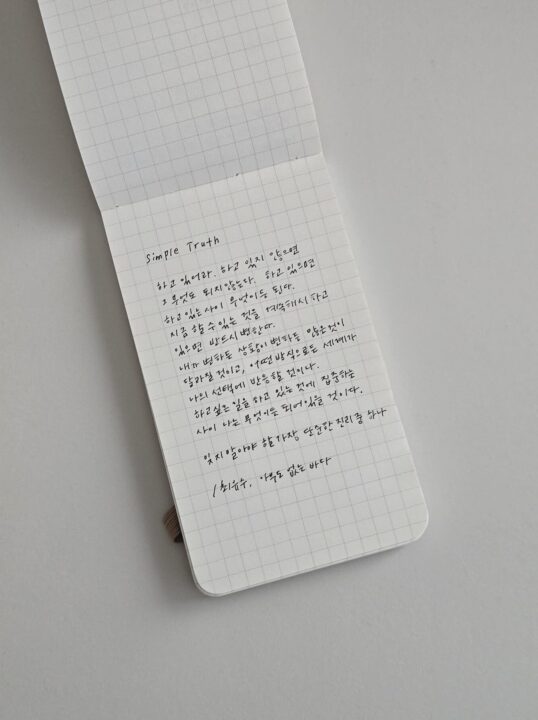 Simple Truth
하고 있어라. 하고 있지 않으면
그 무엇도 되지 않는다. 하고 있으면
하고 있는 사이 무엇이든 된다.
지금 할 수 있는 것을 계속해서 하고
있으면 반드시 변한다.
내가 변하든 상황이 변하든 많은 것이
달라질 것이고, 어떤 방식으로든 세계가
나의 선택에 반응할 것이다.
하고 싶은 일을 하고 있는 것에 집중하는
사이 나는 무엇이든 되어 있을 것이다.
잊지 말아야 할 가장 단순한 진리 중 하나
/ 최유수, 아무도 없는 바다